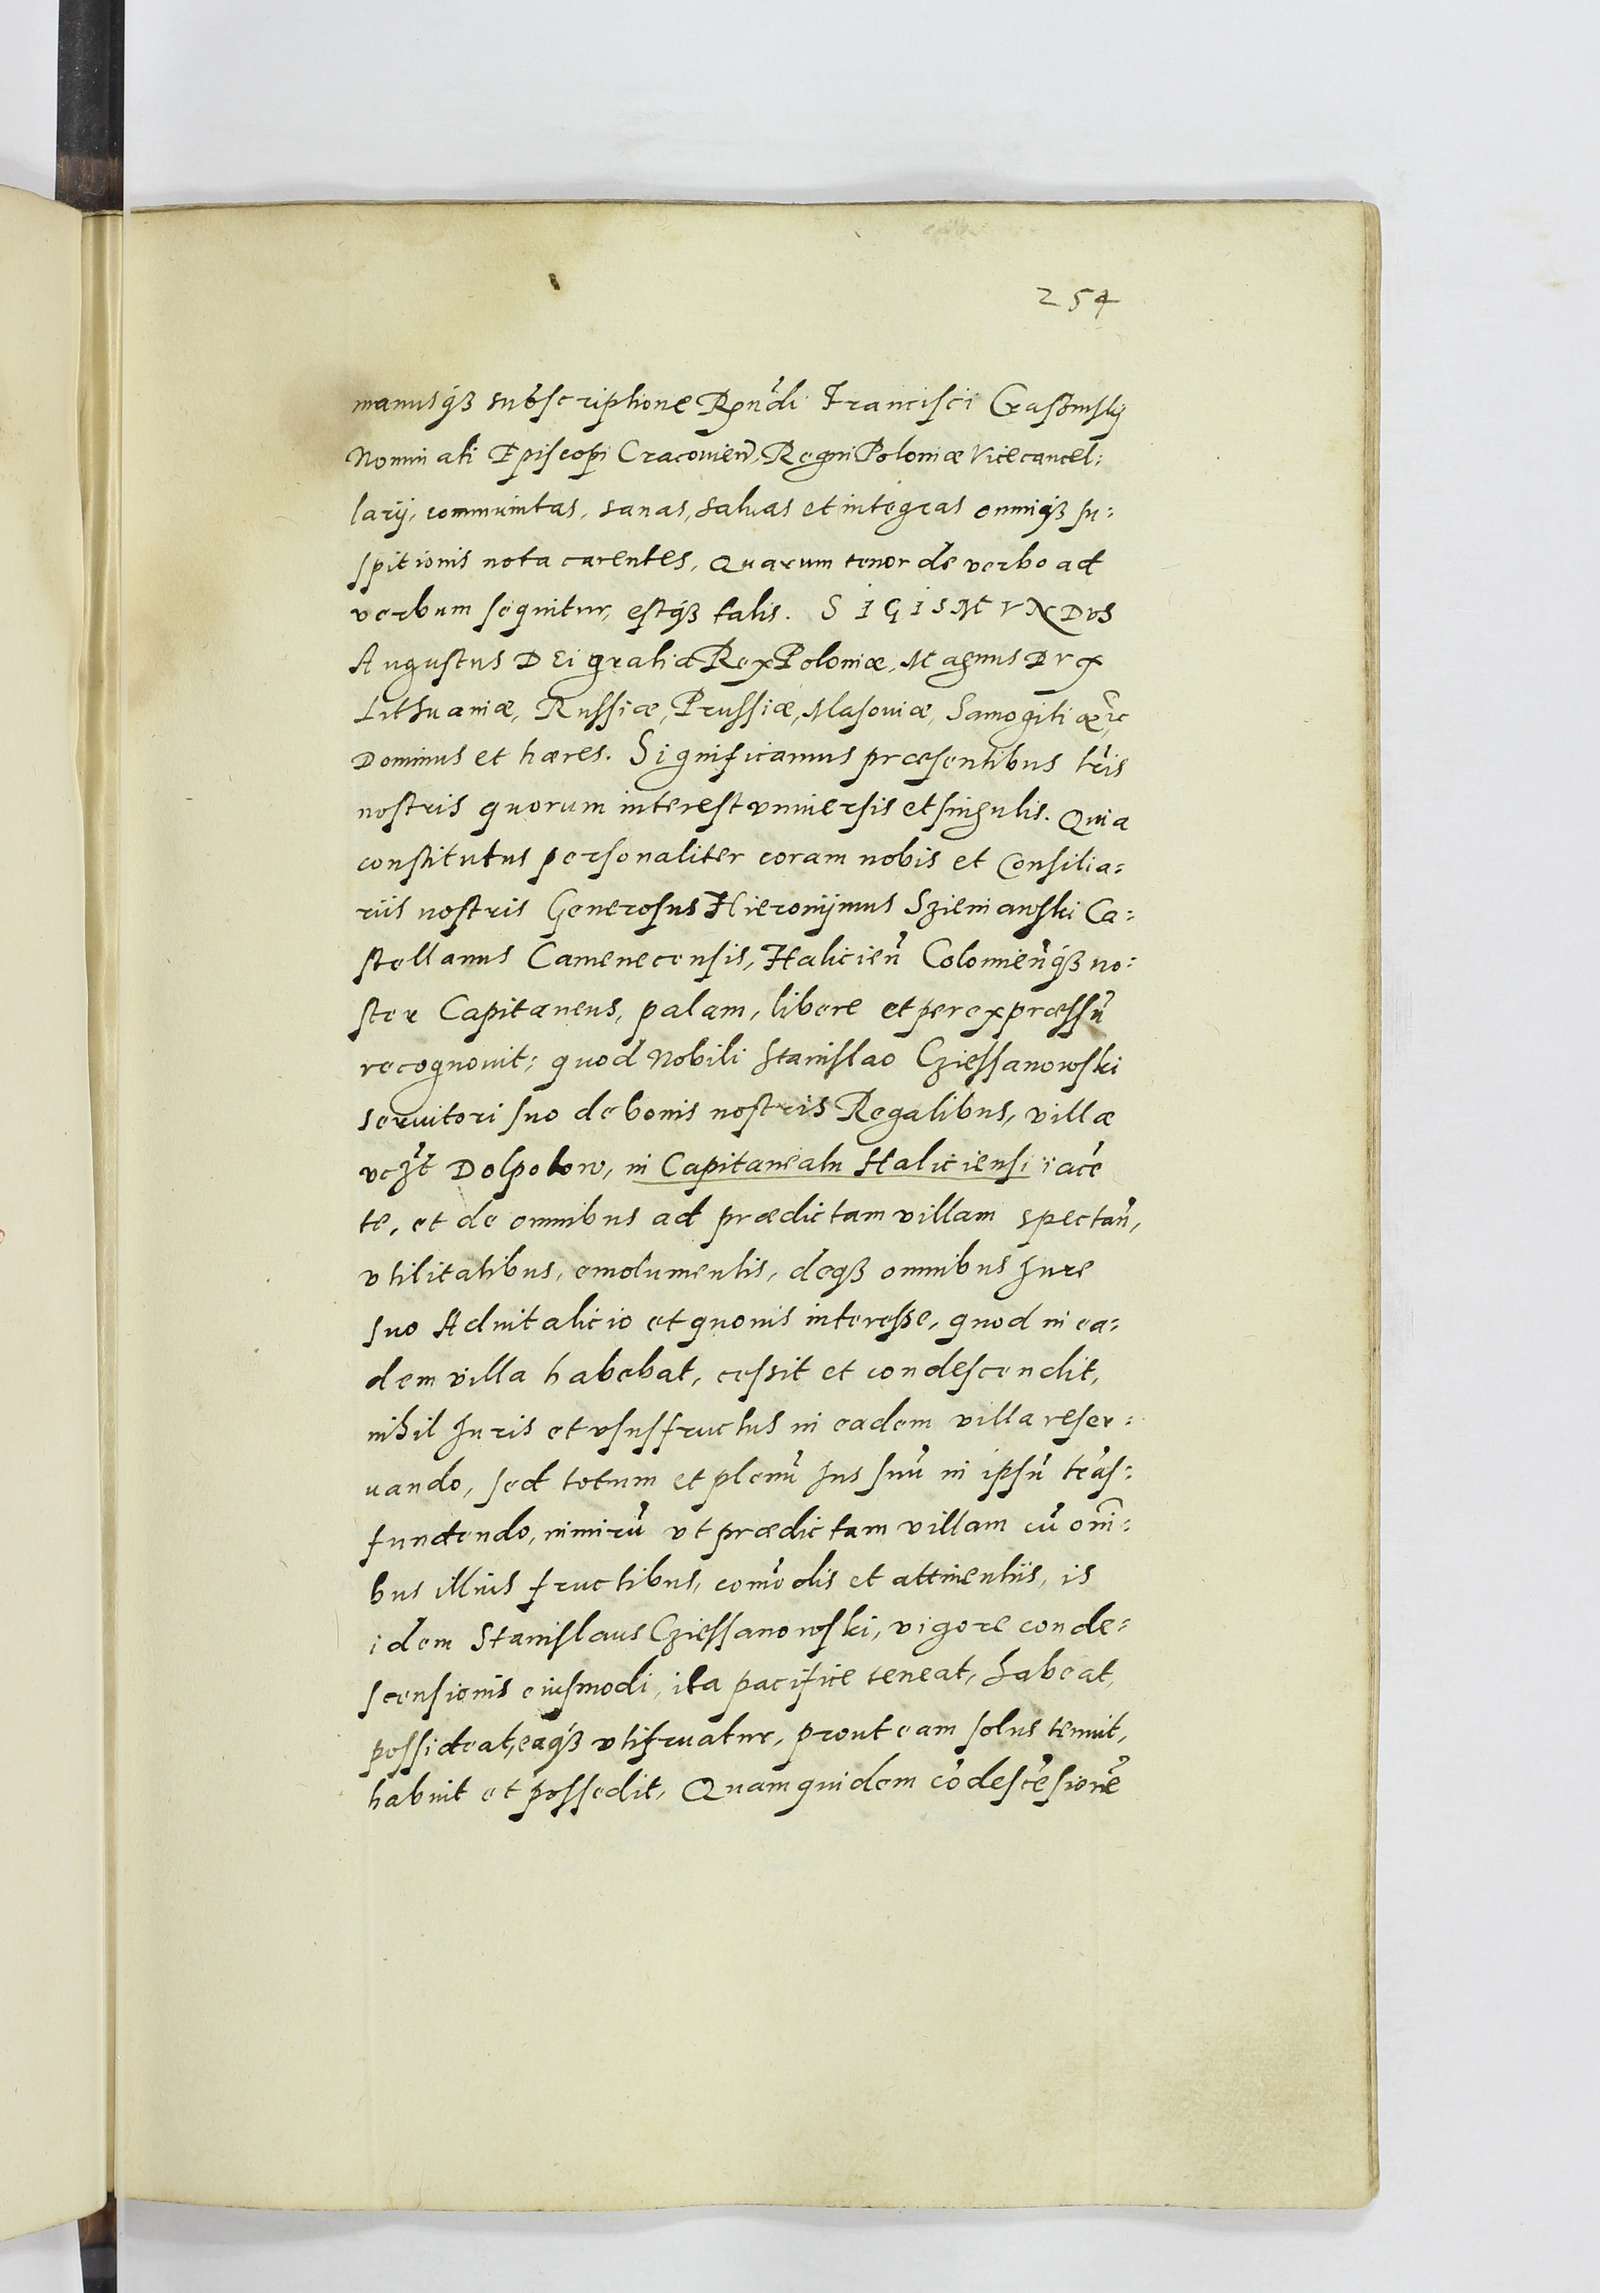 254
manusq́ȝ subscriptione Rn̄di Francisci Crasinskij
Nominati Episcopi Cracouien̄, Regni Poloniæ Vicecancel:
larij, communitas, sanas, saluas et integras omniq́ȝ su:
spitionis nota carentes, Quarum tenor de verbo ad
verbum sequitur, estq́ȝ talis. SIGISMVNDVS
Augustus DEi gratia Rex Poloniæ, Magnus Dvx
Lithuaniæ, Russiæ, Prussiæ, Masouiæ, Samogitiæ etc̄
Dominus et hæres. Significamus præsentibus lr̄is
nostris quorum interest vniuersis et singulis. Quia
constitutus personaliter coram nobis et Consilia=
riis nostris Generosus Hieronijmus Szieniawski Ca=
stellanus Camenecensis, Halicien̄ Colomien̄q́ȝ no:
ster Capitaneus, palam, libere et per expræssū
recognouit; quod Nobili Stanislao Cziessanowski
seruitori suo de bonis nostris Regalibus, villæ
vcꝫt̄ Dolpotow, in Capitaneatu Haliciensi iacē
te, et de omnibus ad prædictam villam spectan̄,
vtilitatibus, emolumentis, deqȝ omnibus Jure
suo Aduitalicio et quouis interesse, quod in ea=
dem villa habebat, cessit et condescendit,
nihil Juris et vsusfructus in eadem villa reser=
uando, sed totum et plenū Jus suū in ipsū trās=
fundendo, nimirū vt prædictam villam cū om̄i=
bus illius fructibus, com̄odis et attinentiis, is
idem Stanislaus Cziessanowski, vigore conde=
scensionis eiusmodi, ita pacifice teneat, habeat,
possideat, eaq́ȝ vtifruatur, prout eam solus tenuit,
habuit et possedit, Quam quidem cōdescēsionē